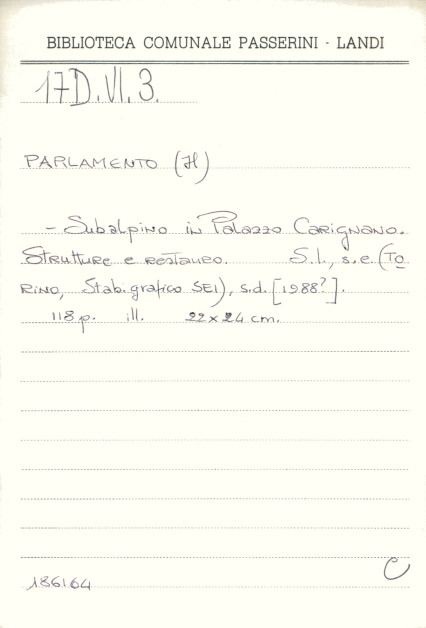 BIBLIOTECA COMUNALE PASSERINI - LANDI
17D.VI.3.
PARLAMENTO (Il)
- Subalpino in Palazzo Carignano.
Strutture e restauro. S.l., s.e. (TO
RINO, Stab. grafico SEI), s.d. [1988?].
118 p. ill. 22x24 cm.
C
186164